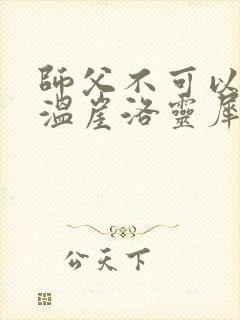 師父不可以
溫崖洛靈犀
公天下